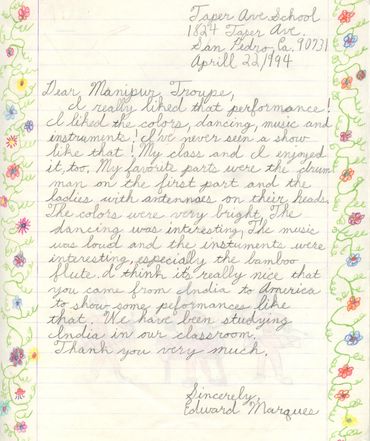 Taper Ave School
1824 Taper Ave.
San Pedro, Ca. 90731
Aprill 22/994
Dear Manipur, Troupe,
I really liked that performance!
I liked the colors, dancing, music and
instruments! I've never seen a show
like that! My class and I enjoyed
it, too. My favorite parts were the drum
man on the first part and the
ladies with antennaes on their heads.
The colors were very bright. The
dancing was interesting. The music
was loud and the instuments were
interesting, especially the bamboo
flute. I think its really nice that
you came from India to America
to show some peformances like
that. We have been studying
India in our classroom.
Thank you very much.
Sincerely,
Edward Marques